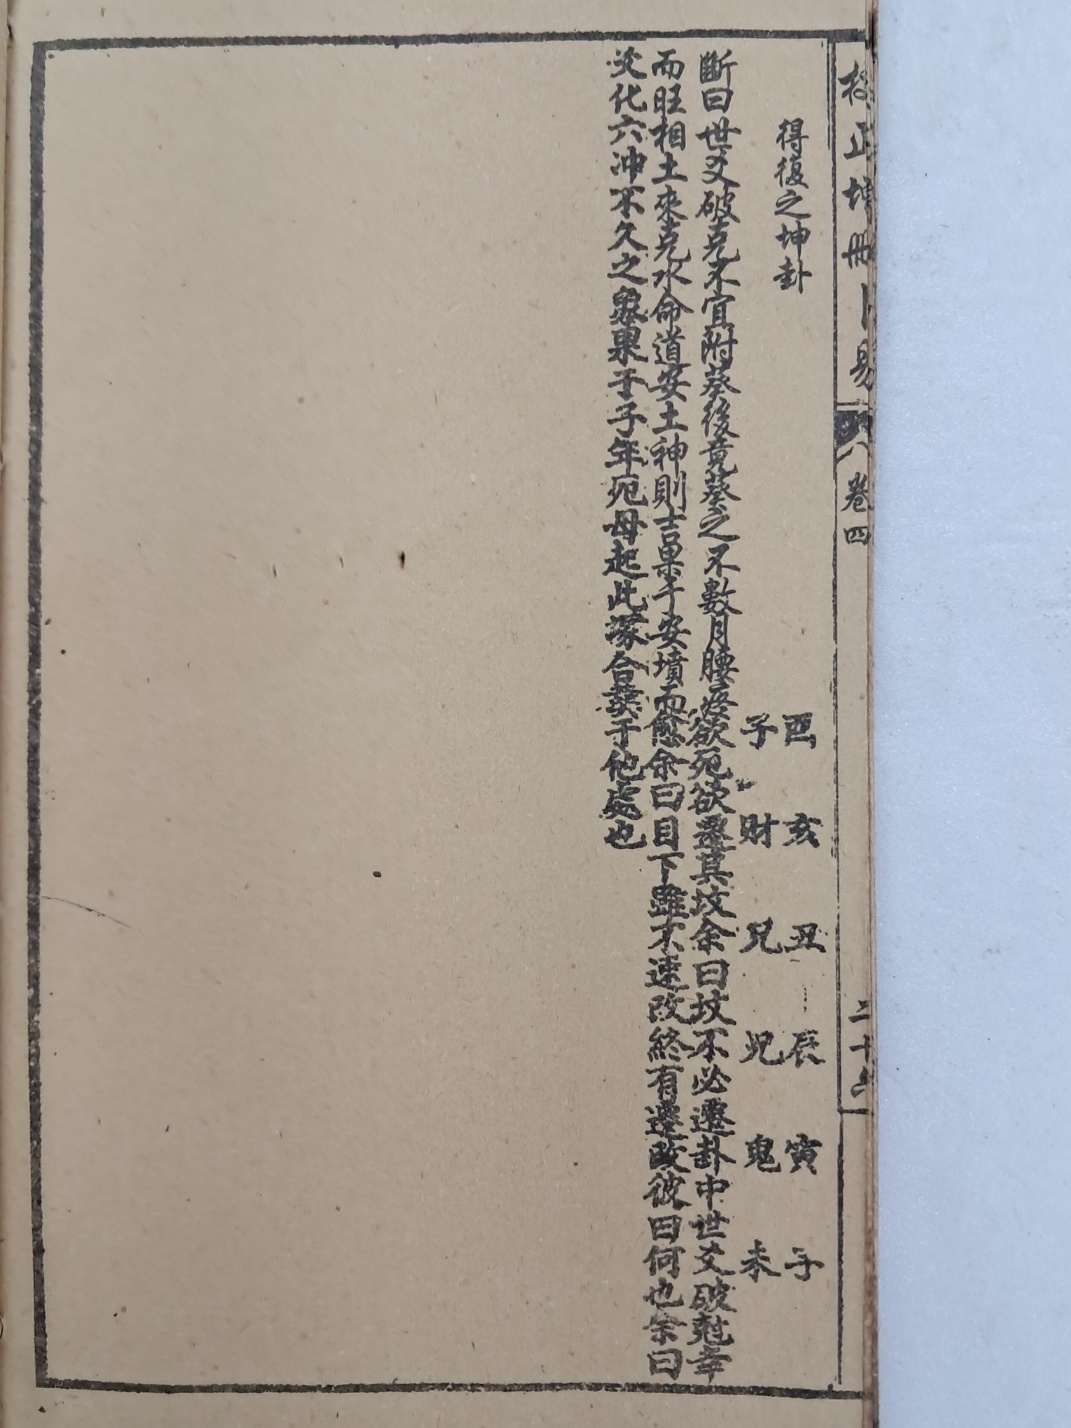 校正增刪卜易
卷四
二十六
得復之坤卦
酉 亥 丑 辰 寅 子
子 財 兄 兄 鬼 未
斷曰世爻破克不宜附葵後竟葵之不數月腰疼欲死欲遷其坟余曰坟不必遷卦中世爻破尅幸
而旺相土來克水命道安土神則吉果于安墳而愈余曰目下雖不速改終有遷改彼曰何也余曰
爻化六冲不久之象果于子年死母起此塚合葬于他處也